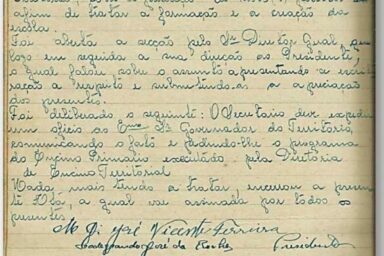 afim de tratar a formação e a criação da
escola.
Foi aberta a secção pelo Snr Diretor Geral, que
logo em seguida a sua direção ao Presidente,
o qual falou sobre o assunto apresentando a
ração a respeito e submetendo-as a apreciação
dos presentes.
Foi deliberado o seguinte: O Secretario dev expedir
um oficio ao Exmo Sr Governador do Territorio,
comunicando o fato e pedindo-lhe o programa
do Encino Primario executado pela Diretoria
de Encino Territorial
Nada mais tendo a tratar, encerrou a presen
te ata, a qual vae assinada por todos os
presentes.
José Vicente Ferreira
José da Rocha Presidente